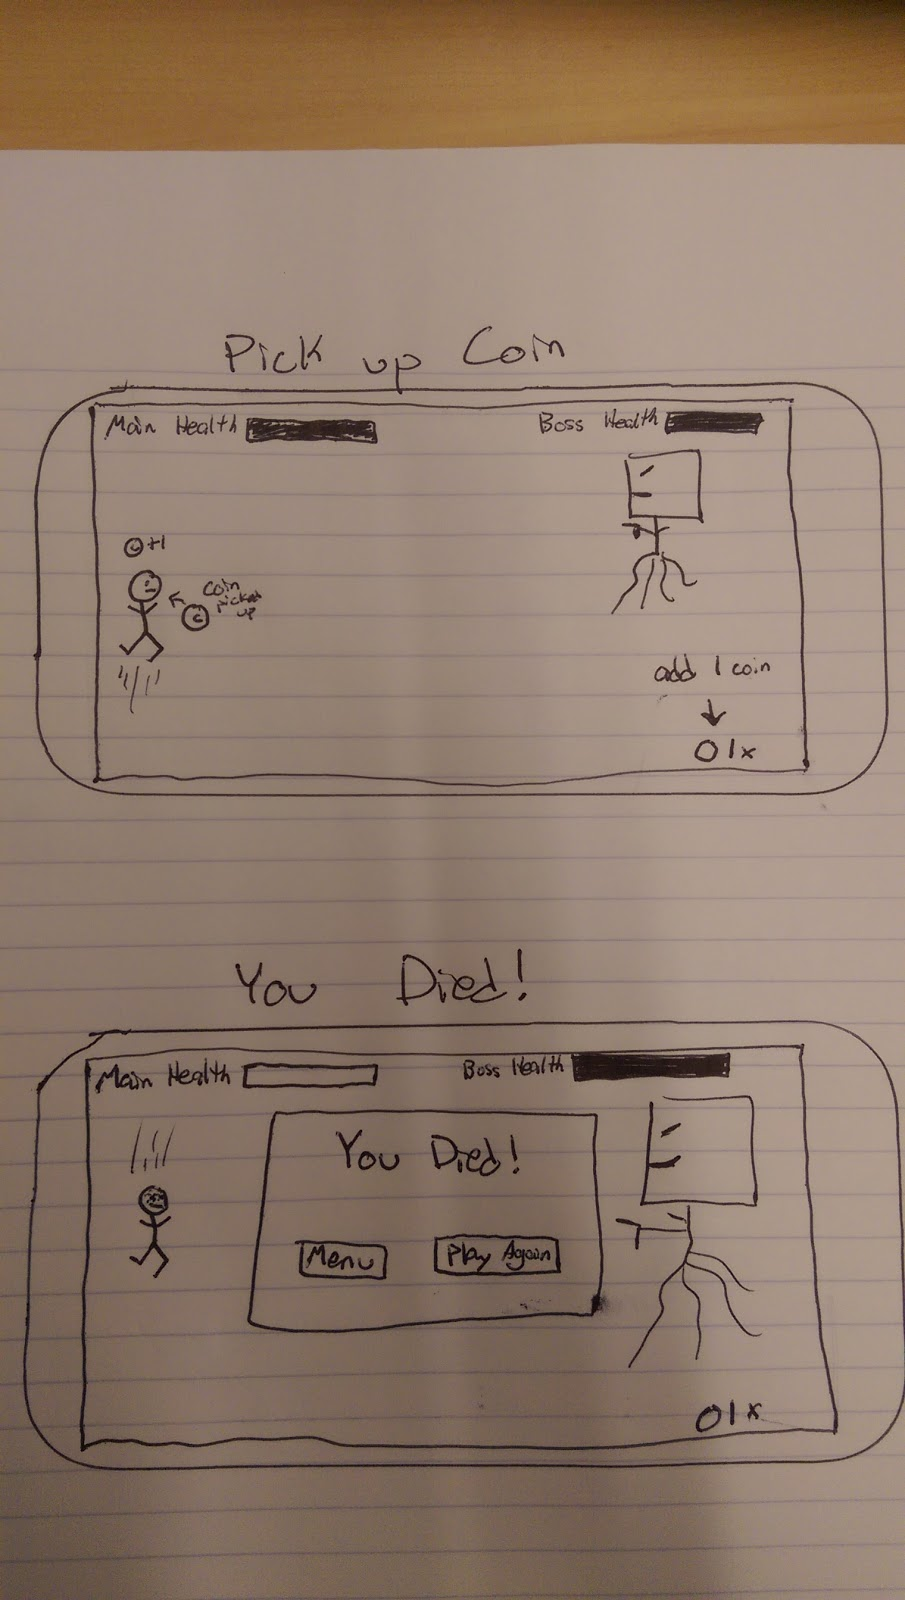 Pick up Coin
Main Health
Boss Health
c +1
coin
picked
up
c
add 1 coin
01x
You Died!
Main Health
Boss Health
You Died!
Menu
Play Again
01x